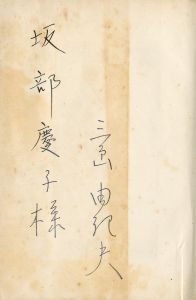 坂部慶子様
三島由紀夫